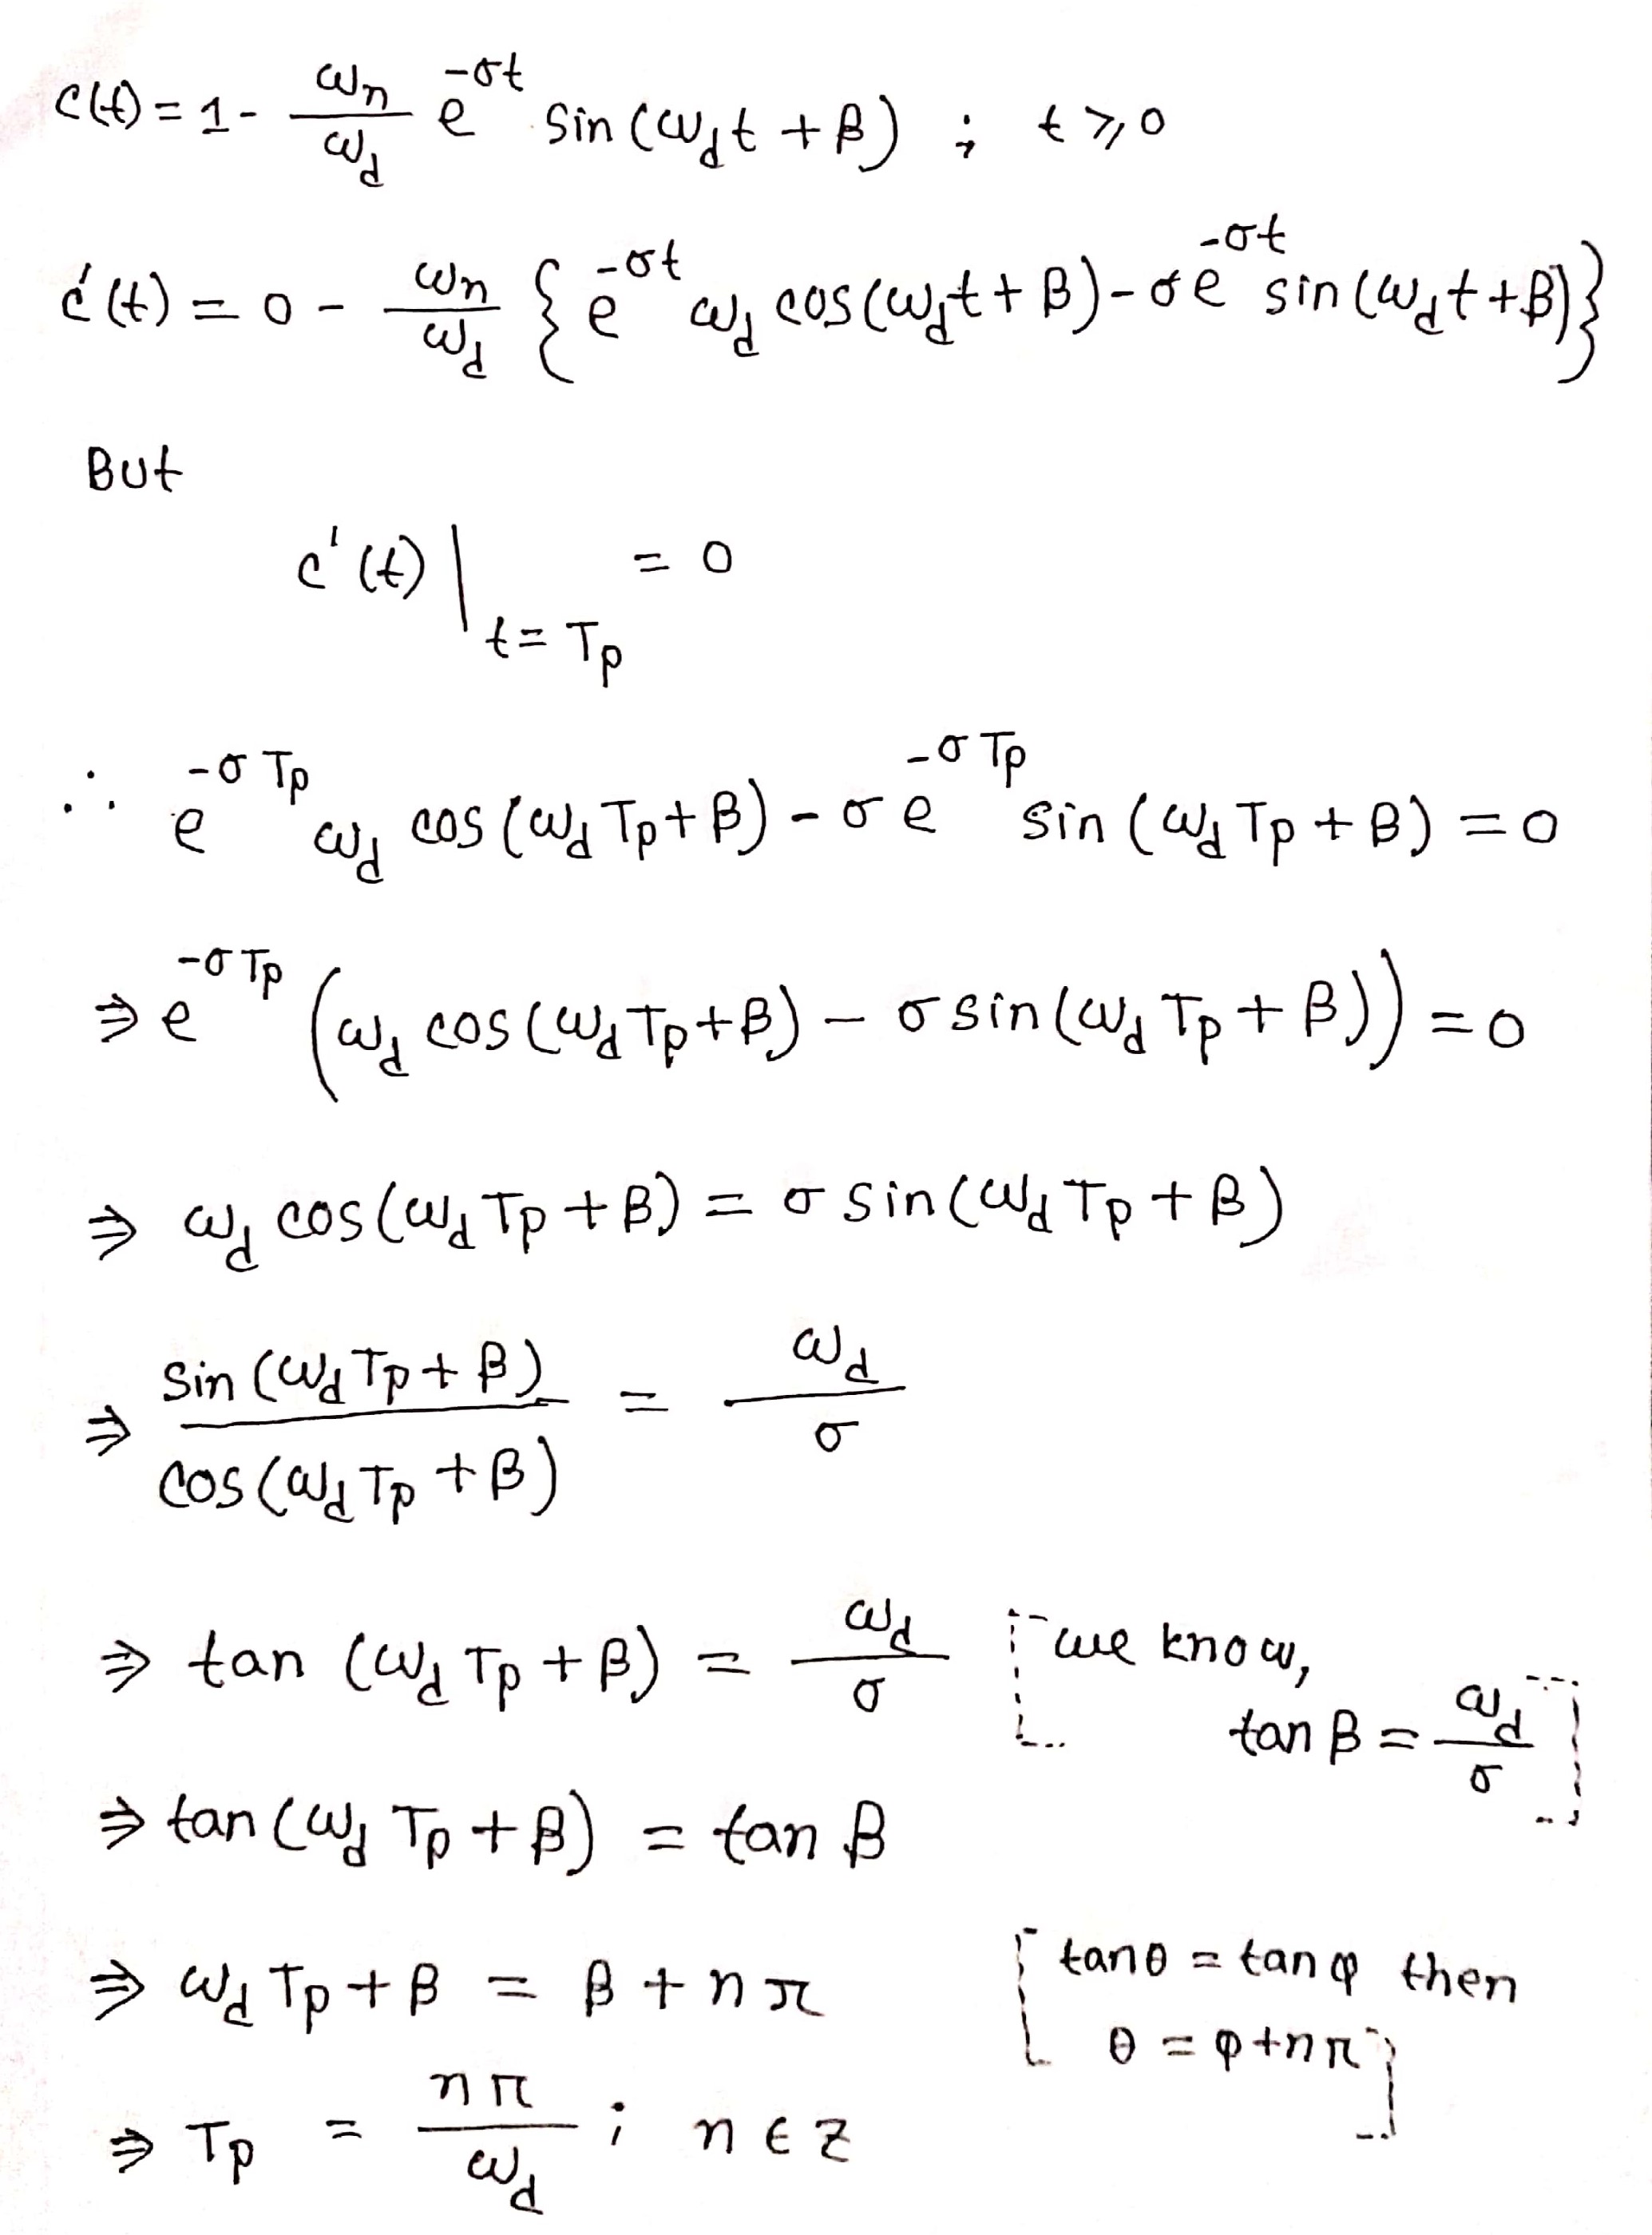 c(t) = 1 - ωn/ωd e^(-σt) sin(ωd t + β) ; t ⩾ 0
c'(t) = 0 - ωn/ωd { e^(-σt) ωd cos(ωd t + β) - σ e^(-σt) sin(ωd t + β) }
But
c'(t) | t = Tp = 0
∴ e^(-σTp) ωd cos(ωd Tp + β) - σ e^(-σTp) sin(ωd Tp + β) = 0
⇒ e^(-σTp) (ωd cos(ωd Tp + β) - σ sin(ωd Tp + β)) = 0
⇒ ωd cos(ωd Tp + β) = σ sin(ωd Tp + β)
⇒ sin(ωd Tp + β) / cos(ωd Tp + β) = ωd / σ
⇒ tan(ωd Tp + β) = ωd / σ
[we know,
tan β = ωd / σ]
⇒ tan(ωd Tp + β) = tan β
⇒ ωd Tp + β = β + nπ
[tan θ = tan φ then
θ = φ + nπ]
⇒ Tp = nπ / ωd ; n ∈ Z